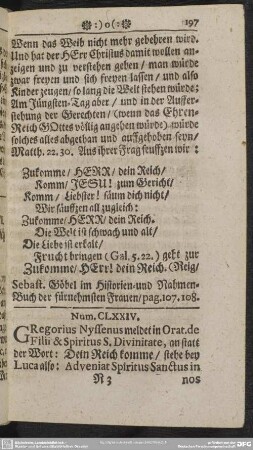 ❀ :o: ❀ 197
Wenn das Weib nicht mehr gebehren wird.
Und hat der HErr Christus damit wollen an-
zeigen und zu verstehen geben / man würde
zwar freyen und sich freyen lassen / und also
Kinder zeugen / so lang die Welt stehen würde;
Am Jüngsten-Tag aber / und in der Auffer-
stehung der Gerechten / (wenn das Ehren-
Reich GOttes völlig angehen würde) würde
solches alles abgethan und auffgehoben seyn /
Matth. 22. 30. Aus ihrer Frag seuffzen wir:
Zukomme / HERR / dein Reich /
Komm / JESU! zum Gericht /
Komm / Liebster! säum dich nicht /
Wir säuffzen all zugleich:
Zukomme / HERR / dein Reich.
Die Welt ist schwach und alt /
Die Liebe ist erkalt /
Frucht bringen (Gal. 5. 22.) geht zur
Zukomme / HErr! dein Reich. (Reig /
Sebast. Göbel im Historien- und Nahmen-
Buch der fürnehmsten Frauen / pag. 107. 108.
Num. CLXXIV.
GRegorius Nyssenus meldet in Orat. de
Filii & Spiritus S. Divinitate, an statt
der Wort: Dein Reich komme / stehe bey
Luca also: Adveniat Spiritus Sanctus in
N 3 nos